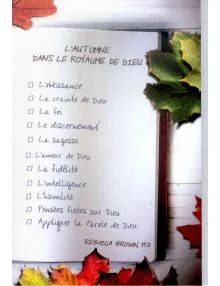 L'AUTOMNE
DANS LE ROYAUME DE DIEU
☐ L'obéissance
☐ La crainte de Dieu
☐ La foi
☐ Le discernement
☐ La sagesse
☐ L'amour de Dieu
☐ La fidélité
☐ L'intelligence
☐ L'humilité
☐ Pensées fixées sur Dieu
☐ Appliquer la Parole de Dieu
REBECCA BROWN, M.D